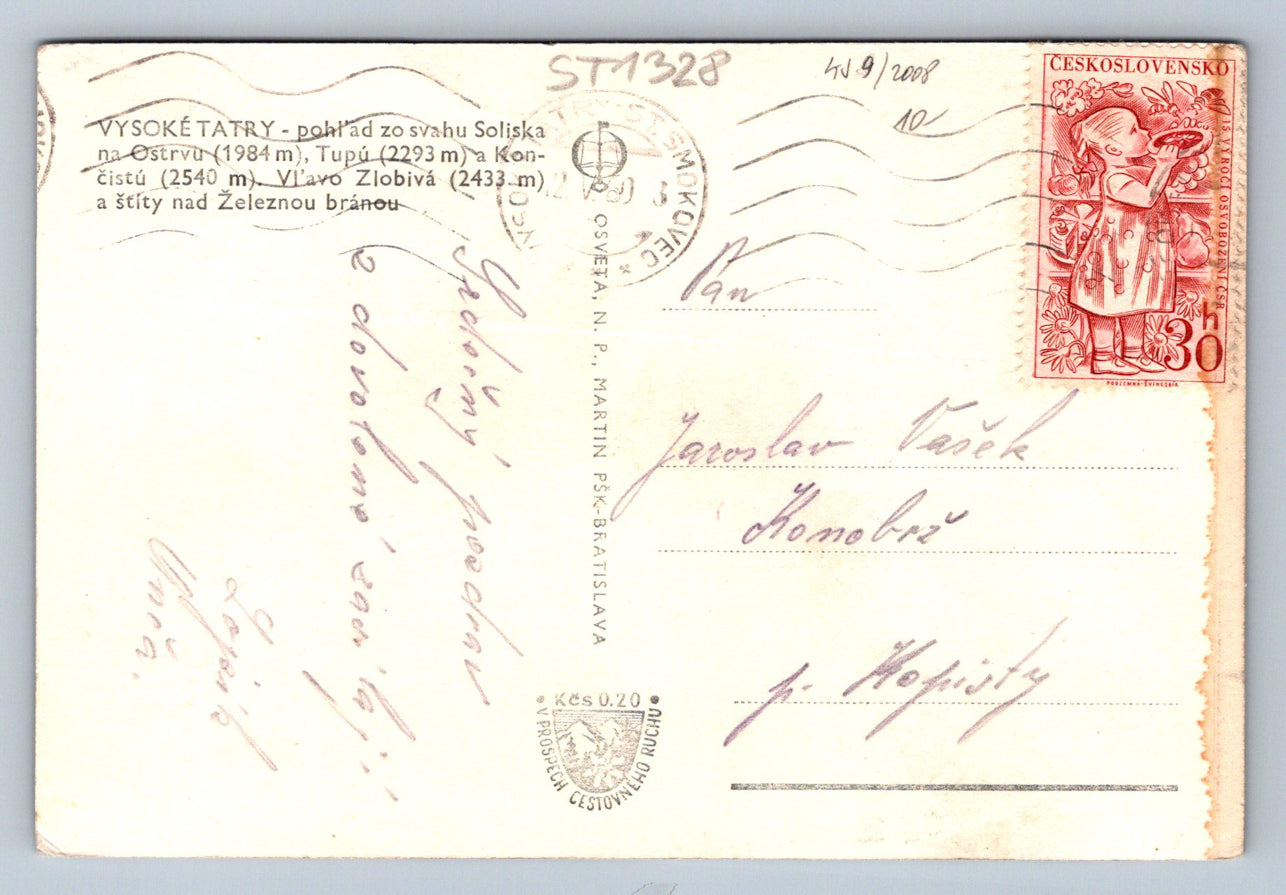 ST1328
4J 9/2008
10-
VYSOKÉ TATRY - pohľad zo svahu Soliska
na Ostrvu (1984 m), Tupú (2293 m) a Kon-
čistú (2540 m). Vľavo Zlobivá (2433 m)
a štíty nad Železnou bránou
SMOKOVEC
OSVETA, N. P., MARTIN PŠK-BRATISLAVA
ČESKOSLOVENSKO
15. VÝROČÍ OSVOBOZENÍ ČSR
30 h
PODZEMNÁ-ŠVENGSBÍR
Srdečný pozdrav
z dovolené zasílají
Pan
Jaroslav Vašek
Konobrž
p. Kopisty
Kčs 0.20
V PROSPECH CESTOVNÉHO RUCHU